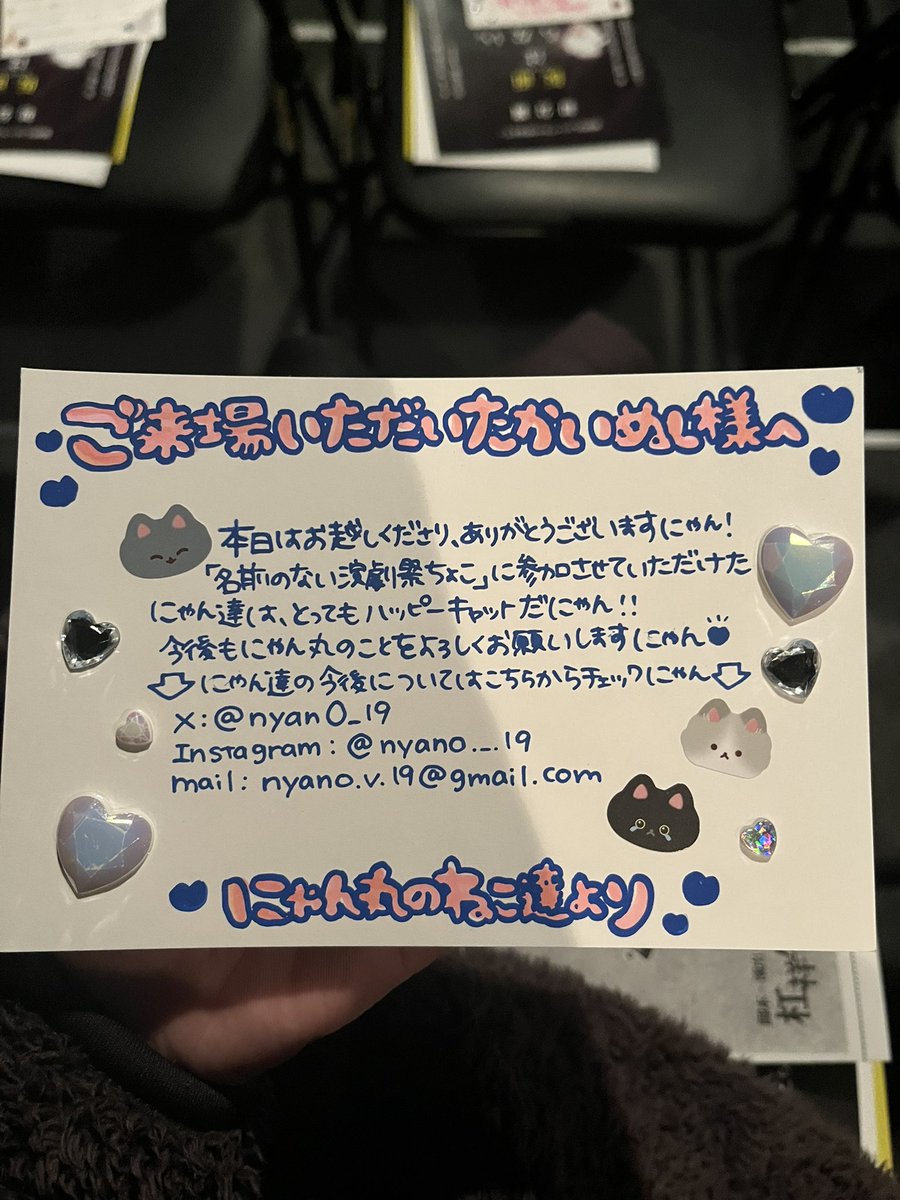 ご来場いただいたかいぬし様へ
本日はお越しくださり、ありがとうございますにゃん!
「名前のない演劇祭ちょこ」に参加させていただけた
にゃん達は、とってもハッピーキャットだにゃん!!
今後もにゃん丸のことをよろしくお願いしますにゃん
⇩にゃん達の今後についてはこちらからチェックにゃん⇩
X:@nyan0_19
Instagram:@nyano._.19
mail:nyano.v.19@gmail.com
にゃん丸のねこ達より